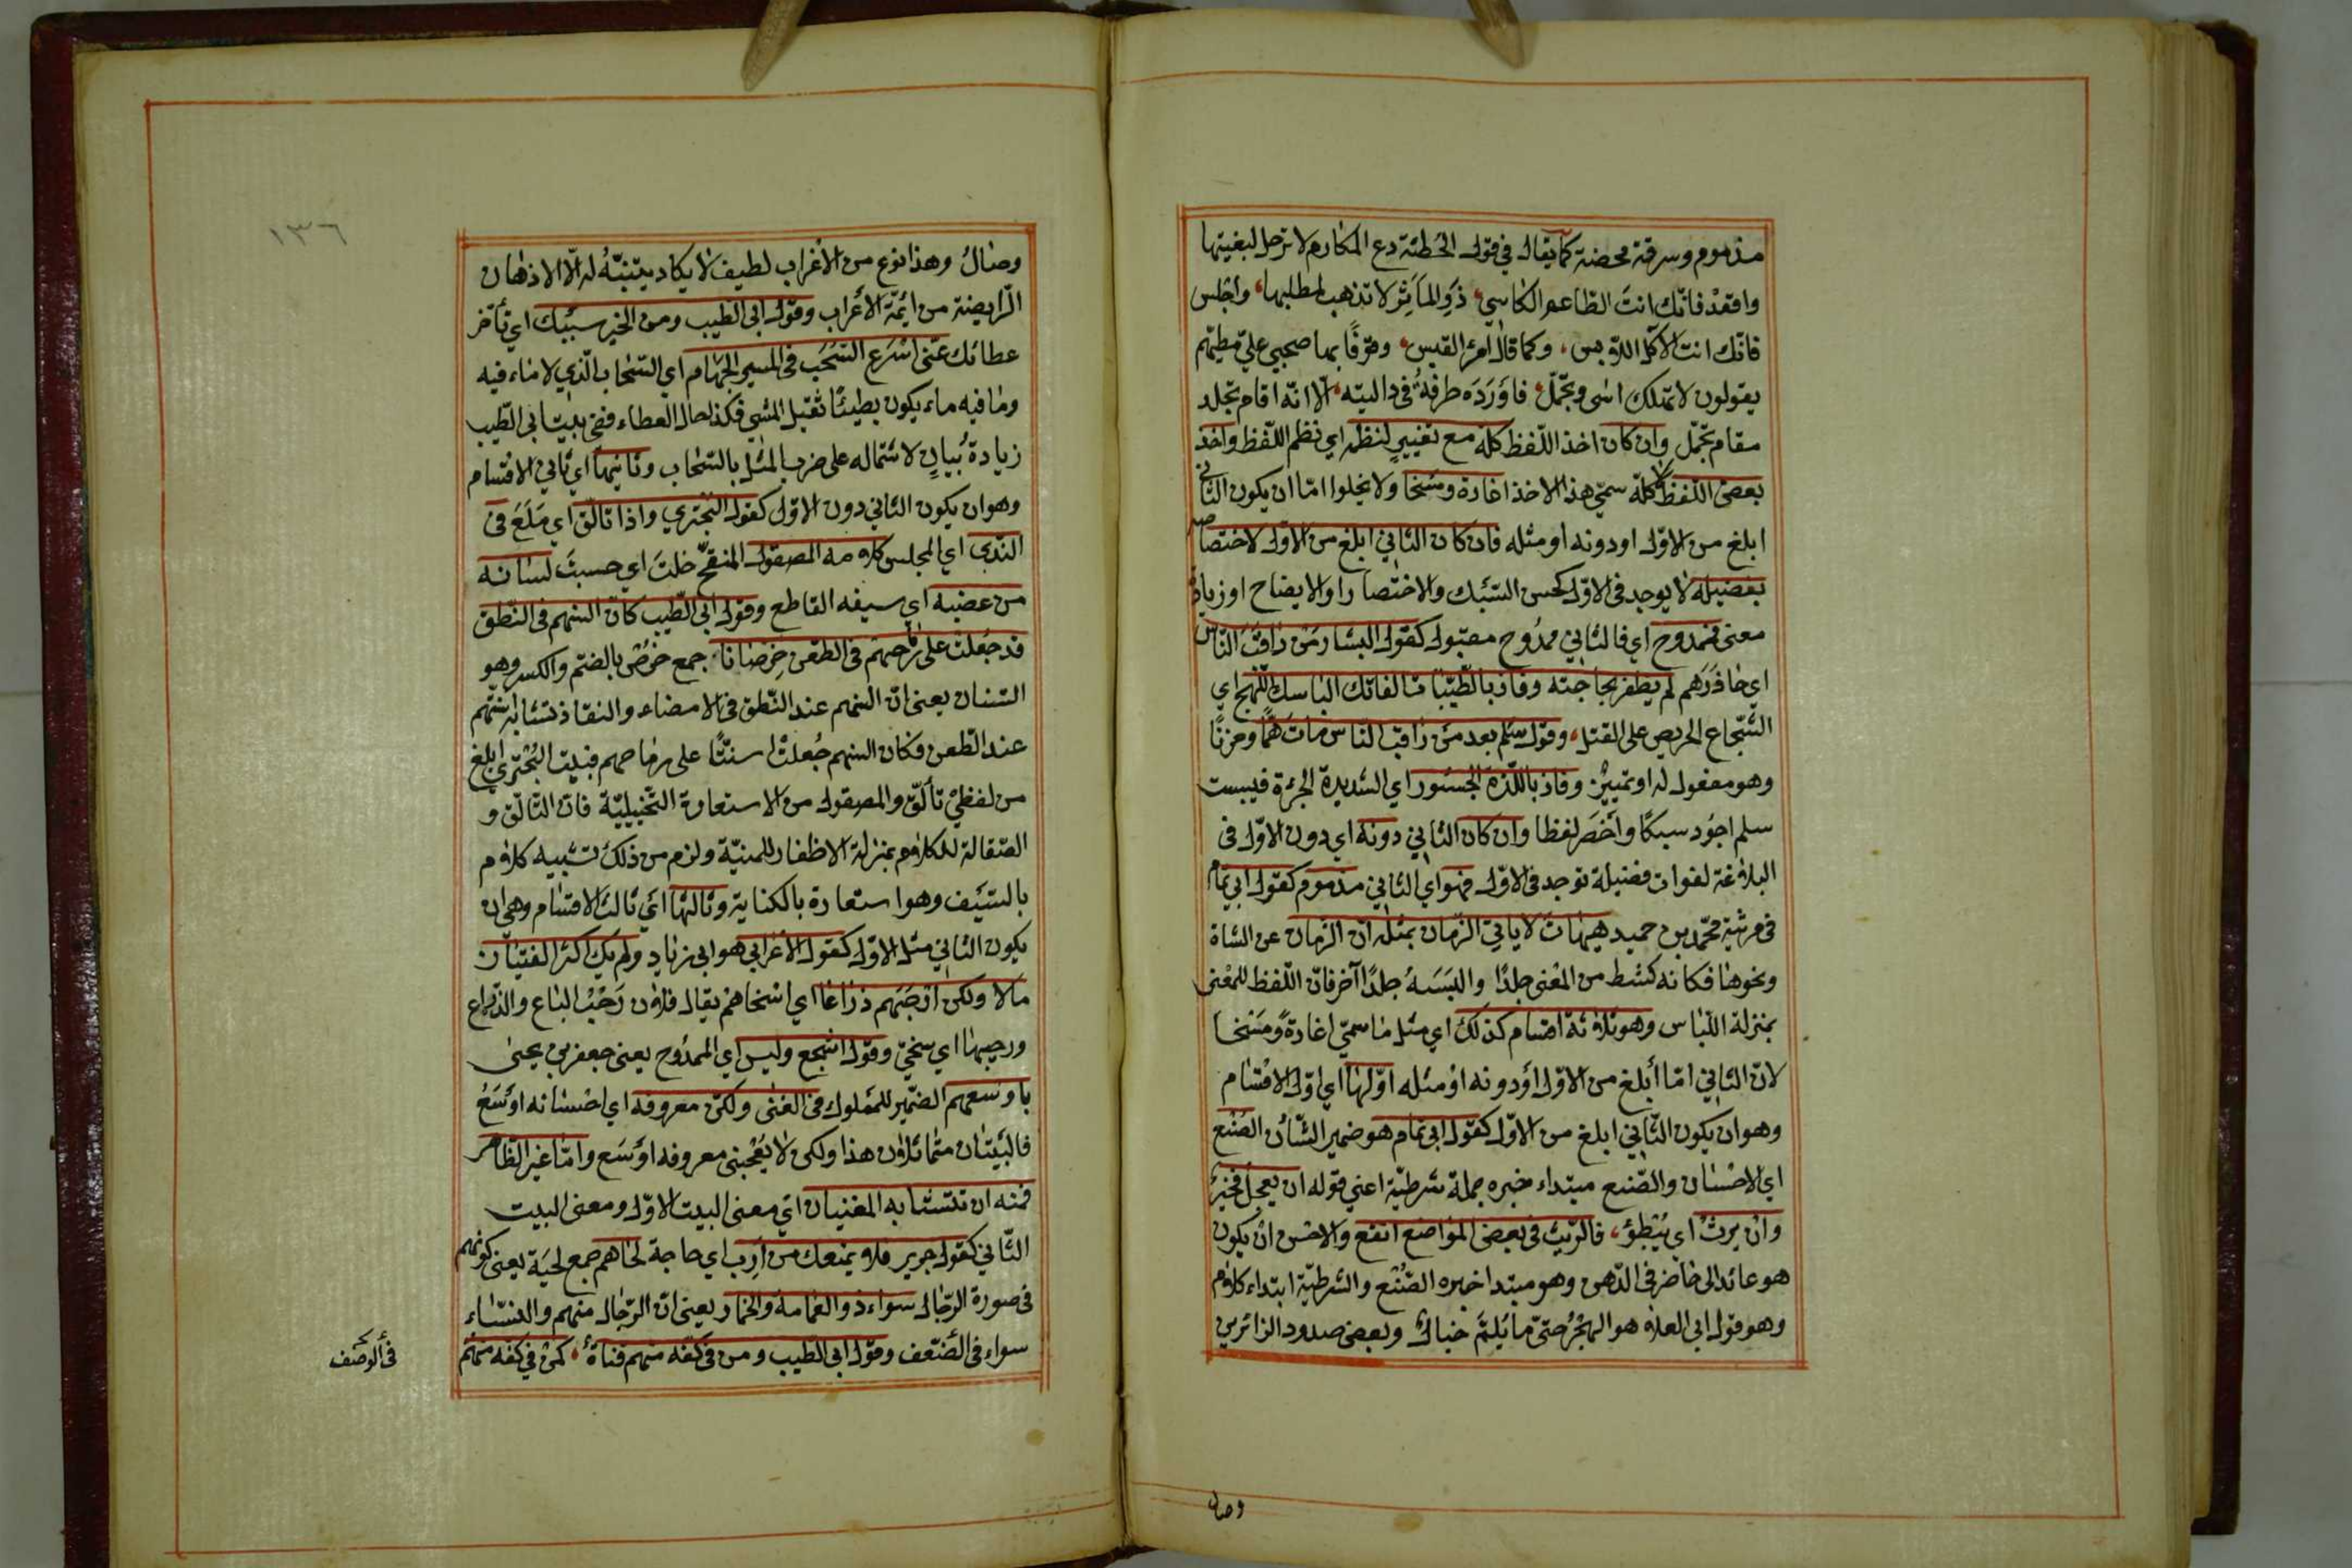 مذموم وسرقة محضة كما يقال في قول الحطئة دع المكارم لا ترحل لبغيتها
واقعد فانّك انتَ الطّاعم الكاسي، ذَرِ المآثِر لا تذهب لمطلبها، واجلس
فانّك انت الآكل اللّابس، وكما قال امرئ القيس، وقوفًا بها صحبي عليّ مطيّهم
يقولون لا تهلك اسى وتجمّل، فاَوْرَدَه طرفةُ في داليته، الّا انّه اقام تجلّد
مقام تجمّل وان كان اخذ اللّفظ كلّه مع تغيير لنظمه اي نظم اللّفظ واخذ
بعض اللّفظ لا كلّه سمّي هذا الاخذ اغارة ومسخا ولا يخلوا امّا ان يكون الثّاني
ابلغ من الاوّل او دونه او مثله فان كان الثاني ابلغ من الاوّل لاختصاصه
بفضيلة لا يوجد في الاوّل كحسن السّبك والاختصار او الايضاح او زيادة
معنى فممدوح اي فالثاني ممدُوح مقبول كقول البشار مَن راقبَ النّاس
اي حاذَرَهم لم يظفر بحاجته وفاز بالطّيّبات الفاتك اللّهج اي
الشّجاع الحريص على القتل، وقول سلم بعد من راقب النّاس مات همًّا وحزنًا
وهو مفعول له او تمييز وفاز باللّذة الجسور اي الشديدة الجرءة فبيت
سلم اجوُد سبكًا واَخصَر لفظا وان كان الثّاني دونه اي دون الاوّل في
البلاغة لفوات فضيلة توجد في الاوّل فهو اي الثّاني مذموم كقول ابي تمام
في مرثية محمّد بن حميد هيهات لا ياتي الزّمان بمثله ان الزمان عن الشاة
ونحوها فكانه كشط من المعنى جلدًا والبَسَهُ جلدًا آخر فانّ اللّفظ للمعنى
بمنزلة اللّباس وهو ثلاثة اقسام كذلك اي مثل ما سمّي اغارةً ومَسْخا
لانّ الثّاني امّا أبلغ من الاوّل اَو دونه اَوْ مثله اوّلها اي اوّل الاقسام
وهو ان يكون الثّاني ابلغ من الاوّل كقول ابي تمام هو ضمير الشّأن الصُنع
اي الاحسان والصّنع مبتداء خبره جملة شرطيّة اعني قوله ان يعجل فخير
وان يرثْ اي يُبْطِؤ، فالرّيث في بعض المواضع انفع والاحسن ان يكون
هو عائد الى حاضر في الذّهن وهو مبتدا خبره الصّنع والشرطيّة ابتداء كلام
وهو قول ابي العلاء هو الهجْرُ حتّى ما يُلِمَّ خيالٌ وبعض صدود الزائرين
وصال
١٣٦
وصالُ وهذا نوع من الأغراب لطيف لا يكاد يتنبّهُ له الّا الاذهان
الرايضة من ائمّة الأعراب وقول ابي الطيب ومن الخير سيبك اي تأخر
عطائك عنّى اسْرَعِ السُّحبِ في المسير الجَهام اي السّحاب الّذي لا ماء فيه
وما فيه ماء يكون بطيئًا ثقيل المشي فكذا حال العطاء ففي بيت ابي الطّيب
زيادة بُيانٍ لاشتماله على ضرب المثل بالسّحاب وثانيها اي ثاني الاقسام
وهو ان يكون الثاني دون الاوّل كقول البُحتري واذا تألّق اي مَلَعَ في
النّديّ اي المجلس كلامه المصقول المنقّح خلتَ اي حسبتَ لسانه
من عضبه اي سيفه القاطع وقول ابي الطّيب كانّ السنهم في النّطق
قد جُعلت على رماحهم في الطّعن خِرصانا جمع خرُص بالضمّ والكسر وهو
السّنان يعنى انّ السنهم عند النّطق في الامضاء والنفاذ تشابه اسنّتهم
عند الطّعن فكان السنهم جُعلتْ اسنّتًا على رماحهم فبيت البُحتري ابلغ
من لفظيْ تألّق والمصقول من الاستعارة التّخييليّة فانّ التّألّق و
الصّقالة للكلام بمنزلة الاظفار للمنيّة ولزم من ذلك تشبيه كلام
بالسّيف وهو استعارة بالكناية وثالثها اي ثالث الاقسام وهي ان
يكون الثاني مثل الاوّل كقول الأعرابي هو ابي زياد ولم يك اكثر الفتيان
مالا ولكن ارْحَبَهم ذراعًا اي اسخاهم يقال فلان رَحْبُ الباع والذّراع
ورحيبها اي سخيّ وقول اشجع وليس اي الممدُوح يعنى جعفر بن يحيى
باوسعهم الضّمير للملوك في الغنى ولكن معروفه اي احسانه اَوْسَعُ
فالبيتان متماثلان هذا ولكن لا يُعْجبنى معروفه اوْسَع وامّا غير الظّاهر
فمنه ان تتشابه المعنيان ايْ معنى البيت الاوّل ومعنى البيت
الثّاني كقول جرير فلا يمنعك من اَرِبٍ اي حاجة لحاهم جمع لحيَة يعنى كونهم
في صورة الرّجال سواء ذو العمامة والخمار يعنى انّ الرّجال منهم والنساء
سواء في الضّعف وقول ابي الطّيب ومن في كفّه منهم قناةٌ، كمن في كفّه منهم
في ألوصف